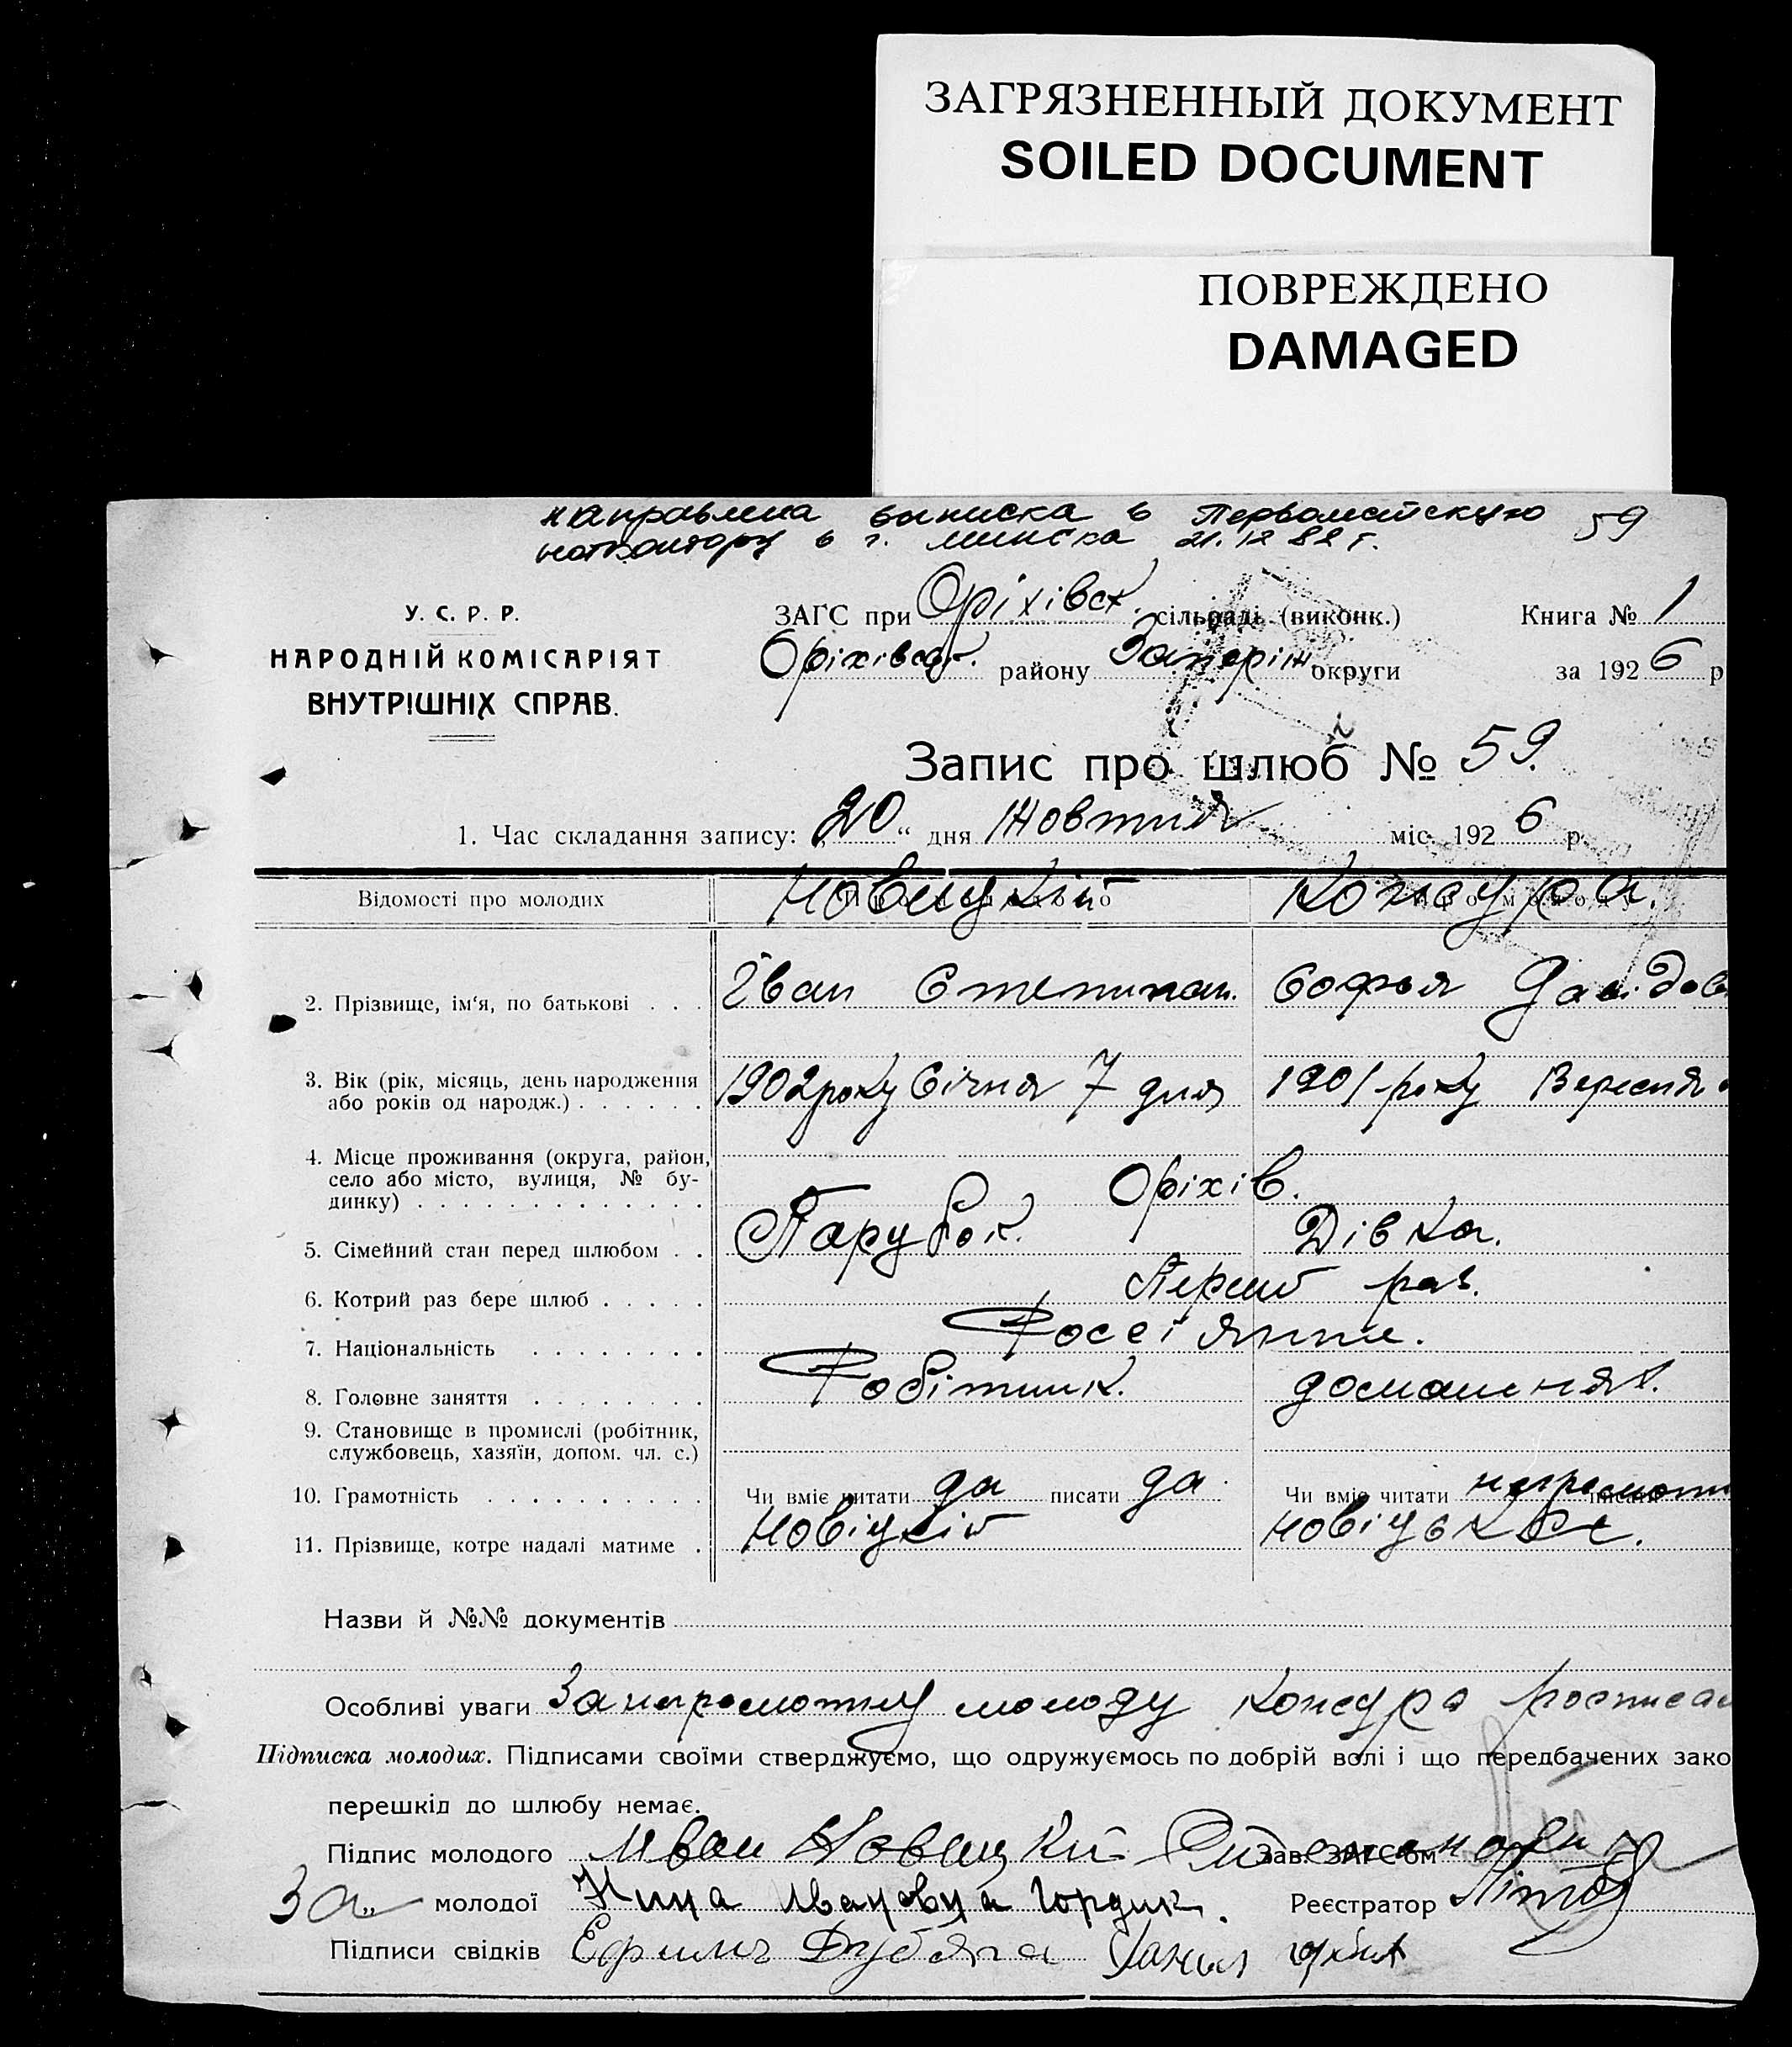 ЗАГРЯЗНЕННЫЙ ДОКУМЕНТ
SOILED DOCUMENT
ПОВРЕЖДЕНО
DAMAGED
направлена выписка в Первомайскую 59
нотконтору в г. Минска 21.12 82 г.
У. С. Р. Р.
НАРОДНІЙ КОМІСАРІЯТ
ВНУТРІШНІХ СПРАВ.
ЗАГС при Оріхівск. сільраді (виконк.) Книга № 1
Оріхівськ. району Запоріж округи за 1926 р
Запис про шлюб № 59.
1. Час складання запису: „20“ дня Жовтня міс. 1926 р.
Відомості про молодих Новицкій Кожура.
2. Прізвище, ім‘я, по батькові . . . Іван Степпан. Софья Давідов
3. Вік (рік, місяць, день народження
або років од народж.) . . . . . . 1902 року Січня 7 дня 1901 року Вересня
4. Місце проживання (округа, район,
село або місто, вулиця, № бу-
динку) . . . . . . . . . . . . . Оріхів.
5. Сімейний стан перед шлюбом . . Парубок. Дівка.
6. Котрий раз бере шлюб . . . . . Перший раз.
7. Національність . . . . . . . . Россіяне.
8. Головне заняття . . . . . . . . Робітник. домашня.
9. Становище в промислі (робітник,
службовець, хазяїн, допом. чл. с.)
10. Грамотність . . . . . . . . . . Чи вміє читати да писати да Чи вміє читати неграмотн писати
11. Прізвище, котре надалі матиме . Новіцкій Новіцька.
Назви й №№ документів
Особливі уваги За неграмотну молоду Кожура росписав
Підписка молодих. Підписами своїми стверджуємо, що одружуємось по добрій волі і що передбачених зако
перешкід до шлюбу немає.
Підпис молодого Иван Новицкий Зав. ЗАГС'ом
За „ молодої Нина Ивановна Гордик. Реєстратор
Підписи свідків Ефим Дубяга